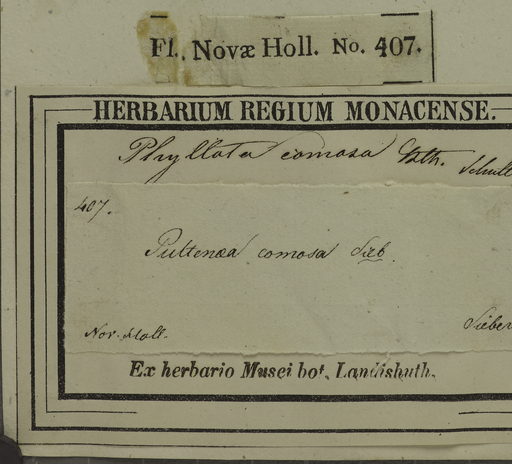 Fl. Novæ Holl. No. 407.
HERBARIUM REGIUM MONACENSE.
Phyllota comosa Bth.
407.
Pultenæa comosa Sieb.
Nov. Holl. Sieber
Ex herbario Musei bot. Landishuth.